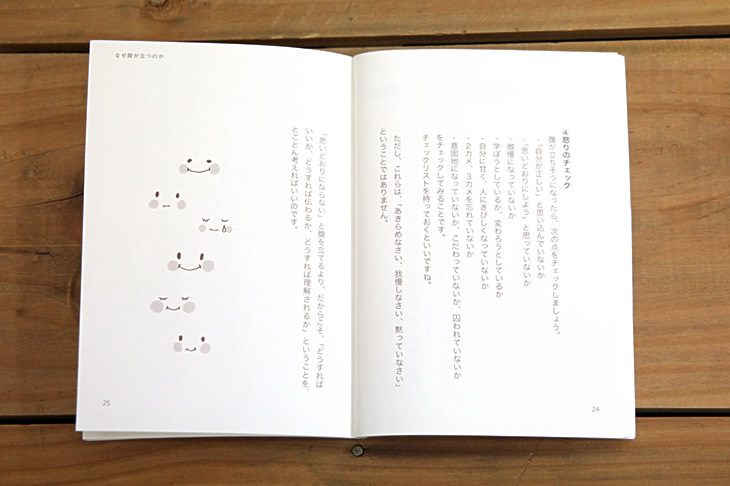 ④怒りのチェック
腹が立ちそうになったら、次の点をチェックしましょう。
・「自分が正しい」と思い込んでいないか
・「思いどおりにしよう」と思っていないか
・傲慢になっていないか
・学ぼうとしているか、変わろうとしているか
・自分に甘く、人にきびしくなっていないか
・2カメ、3カメを忘れていないか
・意固地になっていないか、こだわっていないか、囚われていないか
をチェックしてみることです。
チェックリストを持っておくといいですね。
ただし、これらは、「あきらめなさい、我慢しなさい、黙っていなさい」
ということではありません。
24
なぜ腹が立つのか
「思いどおりにならない」と腹を立てるより、だからこそ、「どうすれば
いいか、どうすれば伝わるか、どうすれば理解されるか」ということを、
とことん考えればいいのです。
25